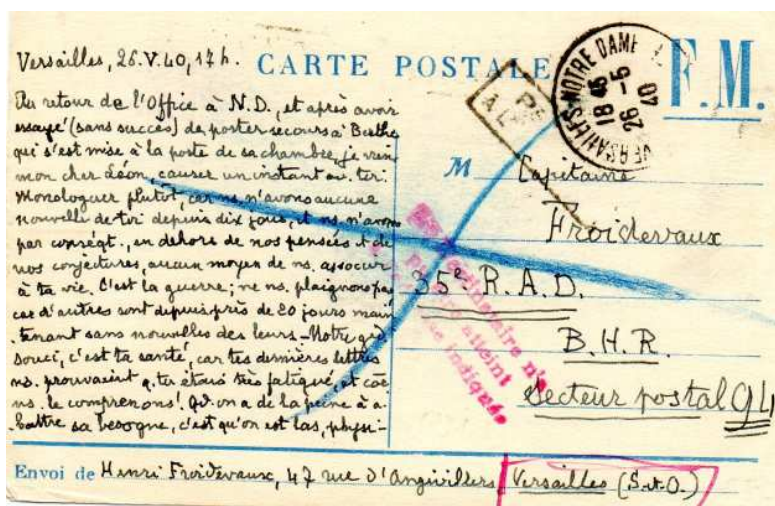 Versailles, 26.V.40, 17h.
CARTE POSTALE
F.M.
VERSAILLES-NOTRE DAME
18 45
26 - 5
40
Au retour de l'Office à N.D., et après avoir
essayé (sans succès) de porter secours à Berthe
qui s'est mise à la porte de sa chambre, je viens
mon cher Léon, causer un instant av. toi.
Monologuer plutôt, car ns. n'avons aucune
nouvelle de toi depuis dix jours, et ns. n'avons
par conségt., en dehors de nos pensées et de
nos conjectures, aucun moyen de ns. associer
à ta vie. C'est la guerre ; ne ns. plaignons pas
car d'autres sont depuis près de 20 jours main
tenant sans nouvelles des leurs - Notre gd
souci, c'est ta santé, car tes dernières lettres
ns. prouvaient q. tu étais très fatigué, et
ns. le comprenons! Qd. on a de la peine à a-
battre sa besogne, c'est qu'on est las, physi-
M Capitaine
Froidevaux
35e R.A.D.
B.H.R.
Secteur postal 9411
n'a
atteint
indiquée
Envoi de Henri Froidevaux, 47 rue d'Angivillers, Versailles (S.-et-O.)